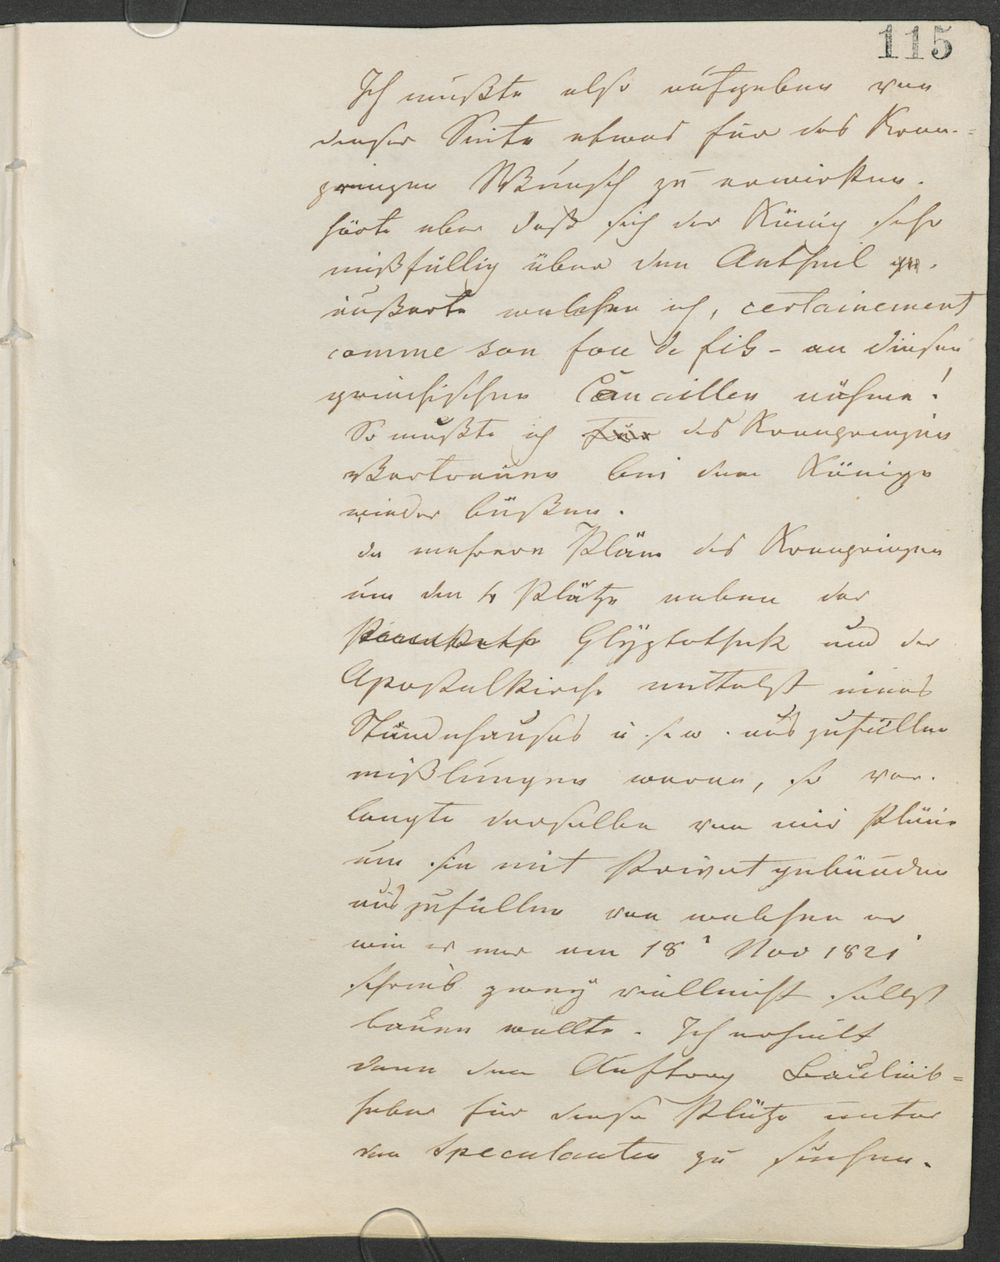 115
Ich mußte also aufgeben von
dieser Seite etwas für des Kron-
prinzen Wunsch zu erwirken.
hörte aber daß sich der König sehr
mißfällig über den Antheil ge-
äußerte welchen ich, certainement
comme son fou de fils - an diesen
griechischen Canaillen nähme!
So mußte ich für des Kronprinzen
Vertrauen bei dem Könige
wieder büßen.
da mehrere Pläne des Kronprinzen
um den 4 Plätze neben der
Glÿptothek und der
Apostelkirche mittelst eines
Ständehauses u. s. w. auszufüllen
mißlungen waren, so ver-
langte derselbe von mir Pläne
um sie mit Privatgebäuden
auszufüllen von welchen er
wie er mir am 18 Nov 1821
schrieb zweÿ vielleicht selbst
bauen wollte. Ich erhielt
dann den Auftrag Baulieb=
haber für diese Plätze unter
den Speculanten zu suchen.